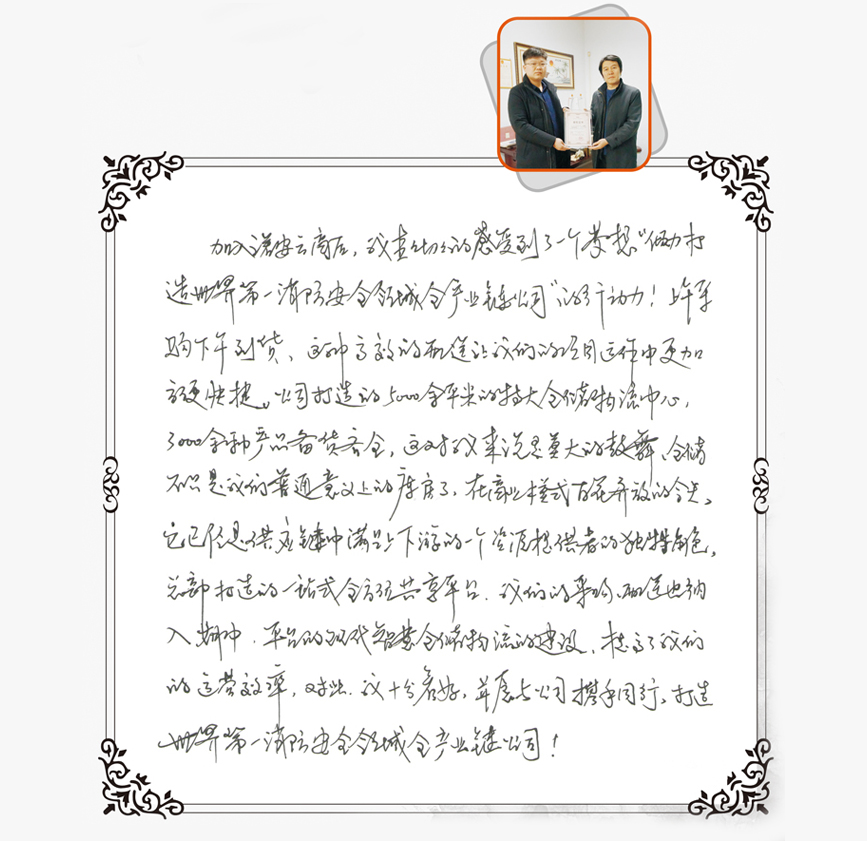 加入诺安云商后，我真切的感受到了一个梦想“倾力打
造世界第一消防安全领域全产业链公司”的行动力！上午采
购下午到货、这种高效的配送让我们的项目运作中更加
方便快捷。公司打造的5000余平米的特大仓储物流中心，
3000余种产品备货齐全，这对我来说是莫大的鼓舞、仓储
不只是我们普通意义上的库房了，在商业模式百花齐放的今天、
它已经是供应链中满足上下游的一个资源提供者的独特角色，
总部打造的一站式全方位共享平台．我们的采购、配送也纳
入其中．平台的现代智慧仓储物流的建设、提高了我们
的运营效率，对此．我十分看好，并愿与公司携手同行、打造
世界第一消防安全领域全产业链公司！